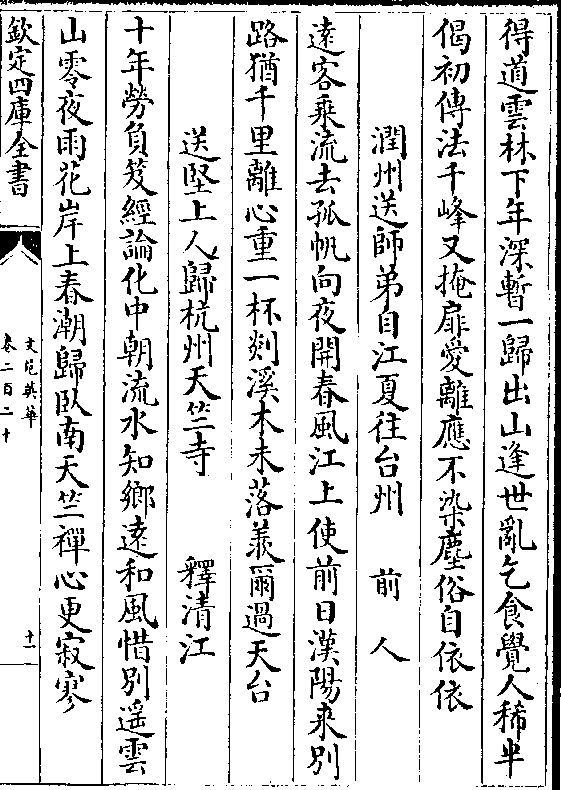 得道雲林下年深暫一歸出山逢世亂乞食覺人稀半
偈初傳法千峰又掩扉愛離應不染塵俗自依依
潤州送師弟自江夏往台州　前人
遠客乘流去孤帆向夜開春風江上使前日漢陽來別
路猶千里離心重一杯剡溪木未落羨爾過天台
送堅上人歸杭州天竺寺　釋清江
十年勞負笈經論化中朝流水知鄉遠和風惜別遥雲
山零夜雨花岸上春潮歸臥南天竺禪心更寂寥
欽定四庫全書
文苑英華
卷二百二十
十一